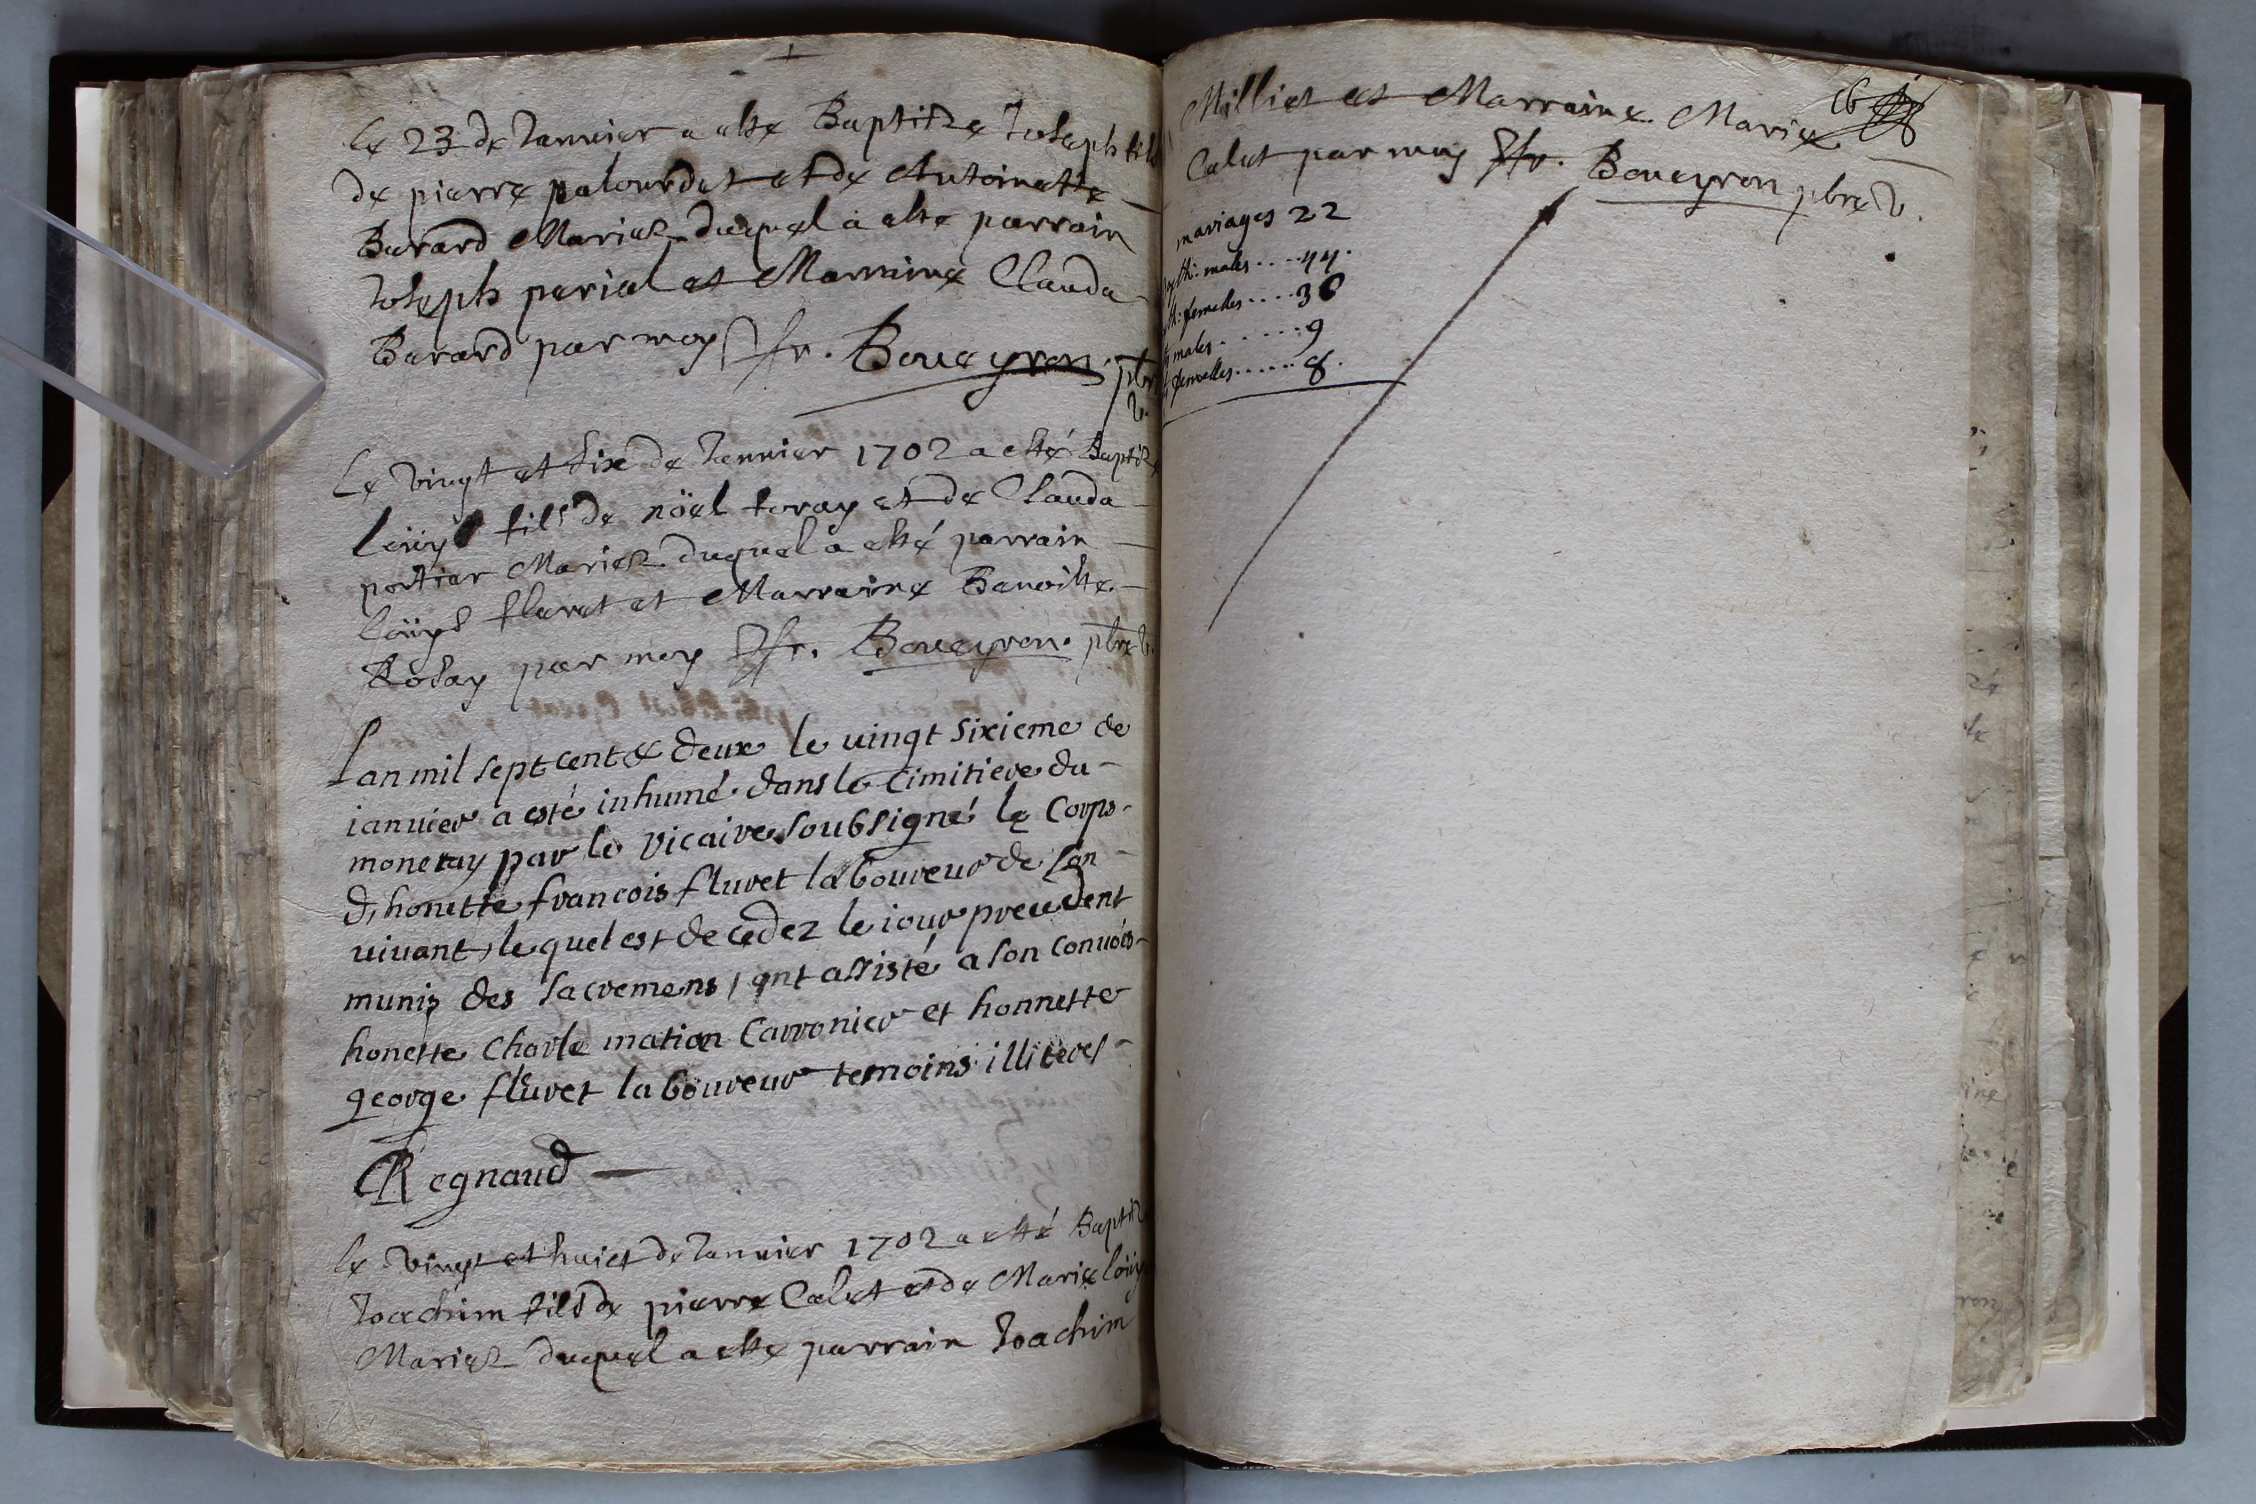 Le 23 de Janvier a este Baptize Joseph fils
de pierre palourdet et de Antoinette
Berard Mariez duquel a este parrain
Joseph perial et Marraine Clauda
Berard par moy ffr. Boueyron pbre
v.
Le vingt et six de Janvier 1702 a esté Baptize
loüys fils de nöel foray et de Clauda
portier Mariez duquel a esté parrain
loüys fleret et Marraine Benoiste
Rosay par moy ffr. Boueyron pbre v.
Lan mil sept cent & deux le vingt sixieme de
ianvier a esté inhumé dans le Cimitiere du
moneray par le vicaire soubsigné le Corps
d'honette francois fluret laboureur de son
vivant, lequel est decedez le iour precedent
munis des sacremens, ont assisté a son convois
honette Charle mation Carronier et honnette
george fluret laboureur temoins illiteres
Regnaud
Le vingt et huict de Janvier 1702 a esté Baptize
Joachim fils de pierre Calet et de Marie loüys
Mariez duquel a este parrain Joachim
Milliet et Marraine Marie
Calet par moy ffr. Boueyron pbre v.
mariages 22
males....44.
femelles....36
males......9
femelles.....8.